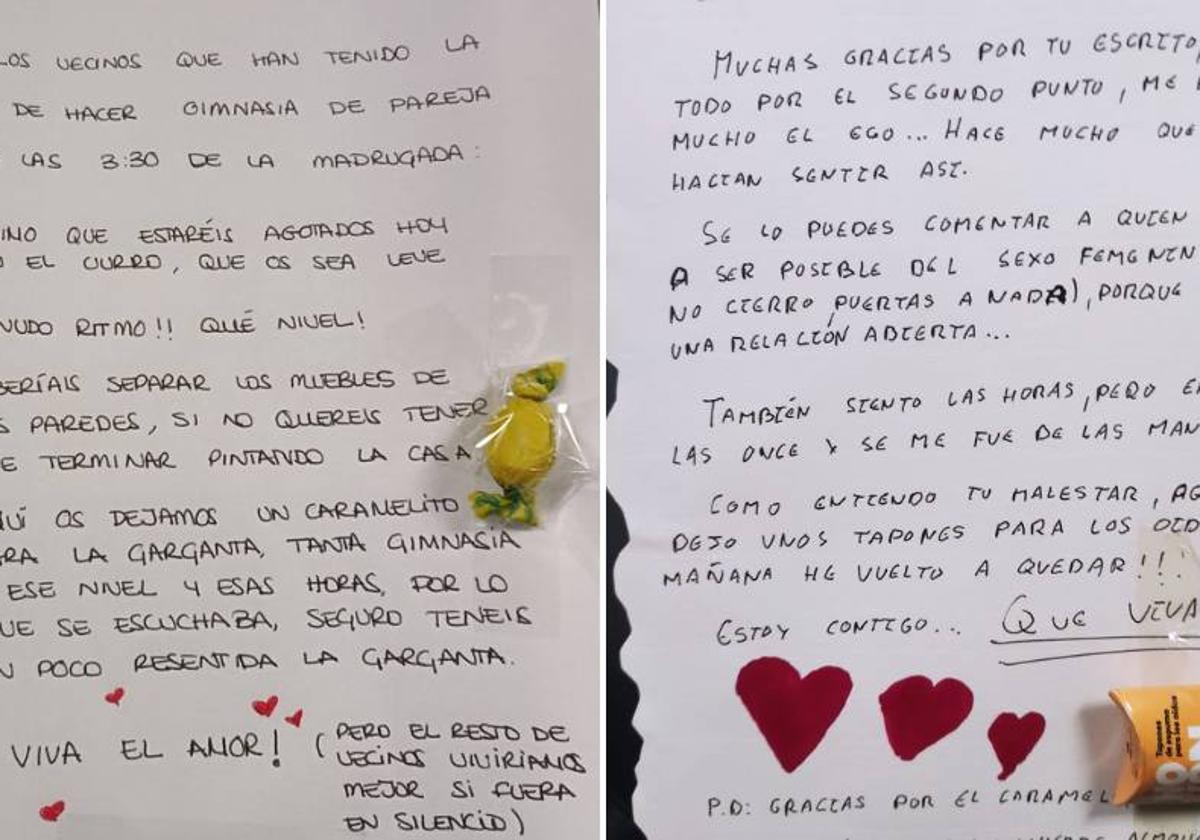 LOS VECINOS QUE HAN TENIDO LA
DE HACER GIMNASIA DE PAREJA
LAS 3:30 DE LA MADRUGADA:
INO QUE ESTARÉIS AGOTADOS HOY
EL CURRO, QUE OS SEA LEVE
NUDO RITMO!! QUÉ NIVEL!
BERÍAIS SEPARAR LOS MUEBLES DE
S PAREDES, SI NO QUEREIS TENER
E TERMINAR PINTANDO LA CASA
QUÍ OS DEJAMOS UN CARAMELITO
RA LA GARGANTA, TANTA GIMNASIA
ESE NIVEL Y ESAS HORAS, POR LO
UE SE ESCUCHABA, SEGURO TENEIS
N POCO RESENTIDA LA GARGANTA.
VIVA EL AMOR! (PERO EL RESTO DE
VECINOS VIVIRIAMOS
MEJOR SI FUERA
EN SILENCIO)
MUCHAS GRACIAS POR TU ESCRITO,
TODO POR EL SEGUNDO PUNTO, ME
MUCHO EL EGO... HACE MUCHO QUE
HACIAN SENTIR ASI.
SE LO PUEDES COMENTAR A QUIEN
A SER POSIBLE DEL SEXO FEMENIN
NO CIERRO PUERTAS A NADA), PORQUE
UNA RELACIÓN ABIERTA...
TAMBIÉN SIENTO LAS HORAS, PERO E
LAS ONCE Y SE ME FUE DE LAS MAN
COMO ENTIENDO TU MALESTAR, AQ
DEJO UNOS TAPONES PARA LOS OID
MAÑANA HE VUELTO A QUEDAR!!!
ESTOY CONTIGO... QUE VIVA
Tapones
de espuma
para los oídos
P.D: GRACIAS POR EL CARAMEL